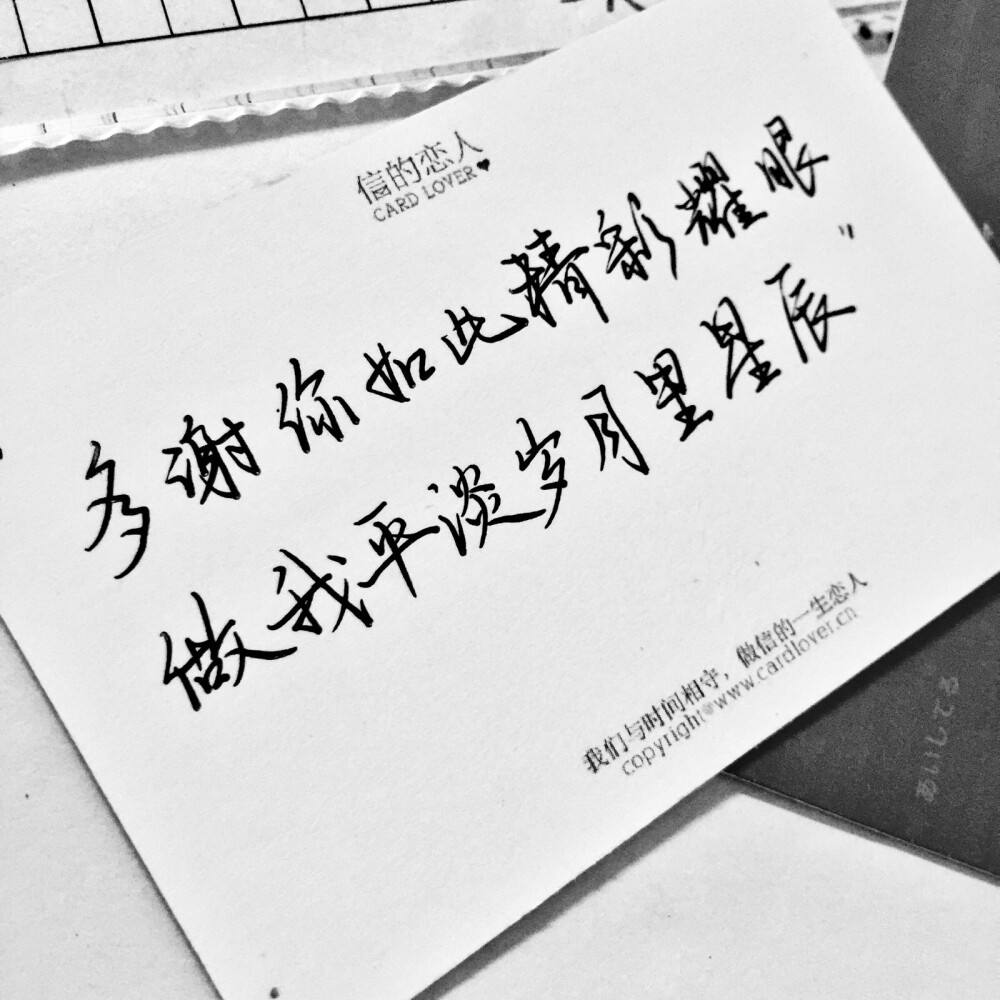 信的恋人
CARD LOVER♥
多谢你如此精彩耀眼
做我平淡岁月里星辰"
我们与时间相守，做信的一生恋人
copyright@www.cardlover.cn
あいしてる